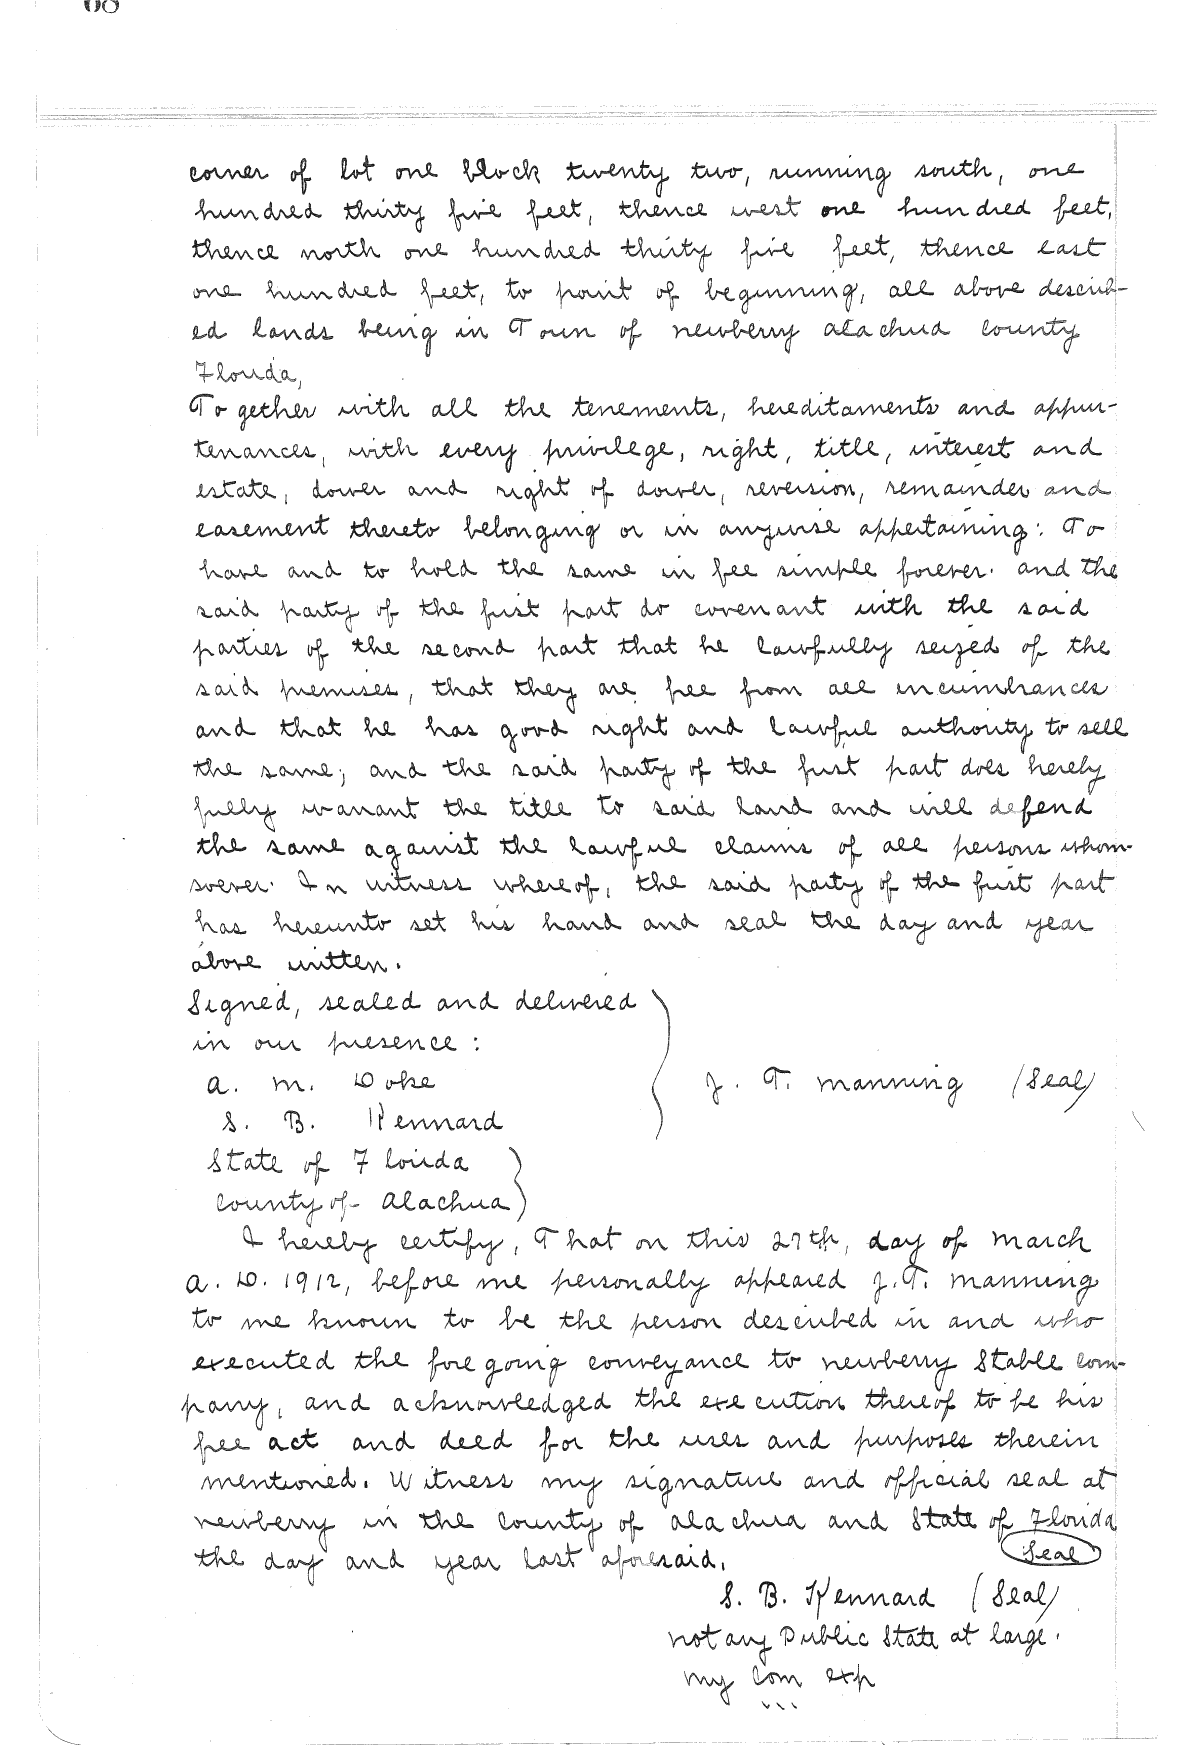 corner of lot one block twenty two, running south, one
hundred thirty five feet, thence west one hundred feet,
thence north one hundred thirty five feet, thence east
one hundred feet, to point of beginning, all above describ-
ed lands being in Town of newberry alachua county
Florida,
Together with all the tenements, hereditaments and appur-
tenances, with every privilege, right, title, interest and
estate, dower and right of dower, reversion, remainder and
easement thereto belonging or in anywise appertaining: To
have and to hold the same in fee simple forever. and the
said party of the first part do covenant with the said
parties of the second part that he lawfully seized of the
said premises, that they are free from all incumbrances
and that he has good right and lawful authority to sell
the same; and the said party of the first part does hereby
fully warrant the title to said land and will defend
the same against the lawful claims of all persons whom-
soever. In witness whereof, the said party of the first part
has hereunto set his hand and seal the day and year
above written.
Signed, sealed and delivered
in our presence:
a. m. Doke J. T. manning (Seal)
S. B. Kennard
State of Florida
County of Alachua
I hereby certify, That on this 27th, day of march
a. D. 1912, before me personally appeared J. T. manning
to me known to be the person described in and who
executed the foregoing conveyance to newberry Stable Com-
pany, and acknowledged the execution thereof to be his
free act and deed for the uses and purposes therein
mentioned. Witness my signature and official seal at
newberry in the County of alachua and State of Florida
the day and year last aforesaid. Seal
S. B. Kennard (Seal)
notary Public State at large.
my Com exp